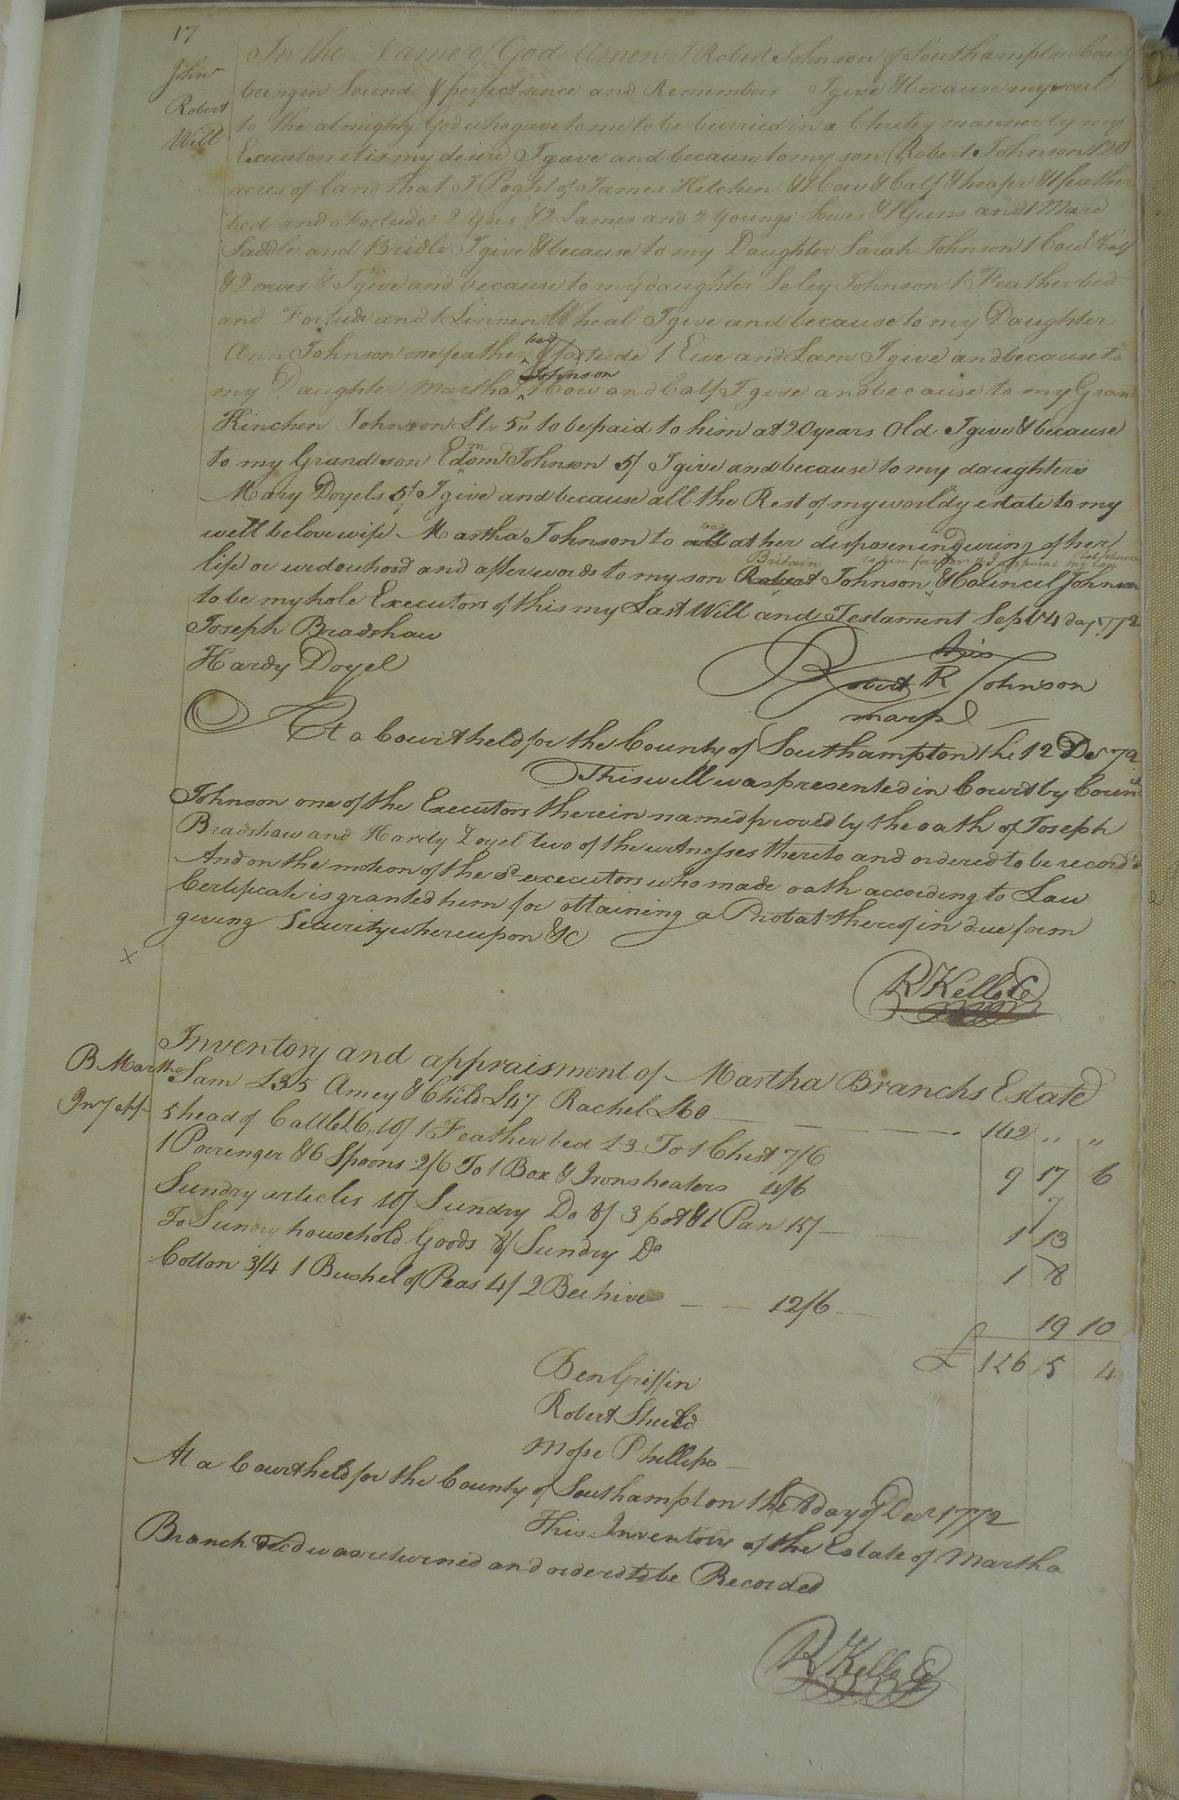 17
John
Robert
Will
In the Name of God Amen I Robert Johnson of Southampton County
being in Sound & perfect sence and Remember I give & because my soul
to the almighty God who gave to me to be burried in a Christey manner by my
Executors it is my desire I gave and because to my son Robert Johnson 120
acres of land that I Boght of James Kitchen & 1 Cow & Calf & heaper & 1 feather
bed and Fortude 2 Yoes & 2 Lames and 2 Young Sowes & 1 Guns and 1 Mare
Saddle and Bridle I give & because to my Daughter Sarah Johnson 1 Cow & Calf
& 2 ewes & I give and because to my daughter Seley Johnson 1 Feather bed
and Fortude and 1 Linnen Wheal I give and because to my Daughter
bed
Ann Johnson one feather & fortude 1 Ewe and Lam I give and because to
Johnson
my Daughter Martha 1 Cow and Calf I give and because to my Gran
Kinchen Johnson St. 5,, to be paid to him at 20 years Old I give & because
to my Grand son Edom Johnson 5/ I give and because to my daughters
Mary Doyels 5/ I give and because all the Rest of my worldy estate to my
well belove wife Martha Johnson to all at her disposen induring of her
Britain
life or widowhood and afterwords to my son Robert Johnson & Council Johnson
to be my hole Executors of this my Last Will and Testament Sept 4 day 1772
Joseph Bradshaw
Hardy Doyel
his
Robert R Johnson
mark
At a Court held for the County of Southampton the 12 Des 72
This will was presented in Court by Council
Johnson one of the Executors therein named proved by the oath of Joseph
Bradshaw and Hardy Doyel two of the witnesses thereto and ordered to be record'd
And on the motion of the sd executors who made oath according to Law
Certificate is granted him for obtaining a Probat thereof in due form
giving Security whereupon &c
x
R Kello Cc
Inventory and appraisment of Martha Branchs Estate
B Martha
Inv & App
Sam £35 Amey & Child £47 Rachel £60 142 ,, ,,
5 head of Cattle £6,,10/ 1 Feather bed £3 To 1 Chest 7/6 9 17 6
1 Porrenger & 6 Spoons 2/6 To 1 Box & Irons heaters 4/6 7
Sundry articles 10/ Sundry Do 8/ 3 pot & 1 Pan 15/ 1 13
To Sundry household Goods 8/ Sundry Do 1 8
Cotton 3/4 1 Bushel of Peas 4/ 2 Bee hive 12/6 19 10
£ 156 5 4
Ben Griffin
Robert Sheild
Mose Phillips
At a Court held for the County of Southampton the day of Decr 1772
This Inventory of the Estate of Martha
Branch decd was returned and ordered to be Recorded
R Kello Cc